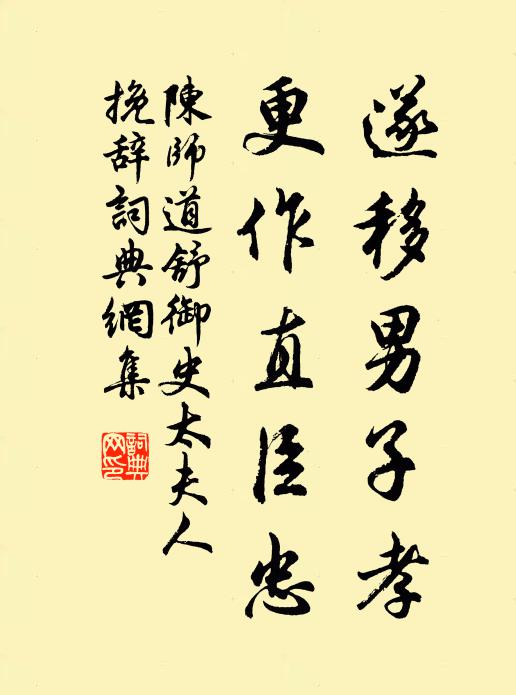 遂移男子孝
更作直臣忠
陳師道舒御史太夫人
挽辞詞典網集
詞典网印